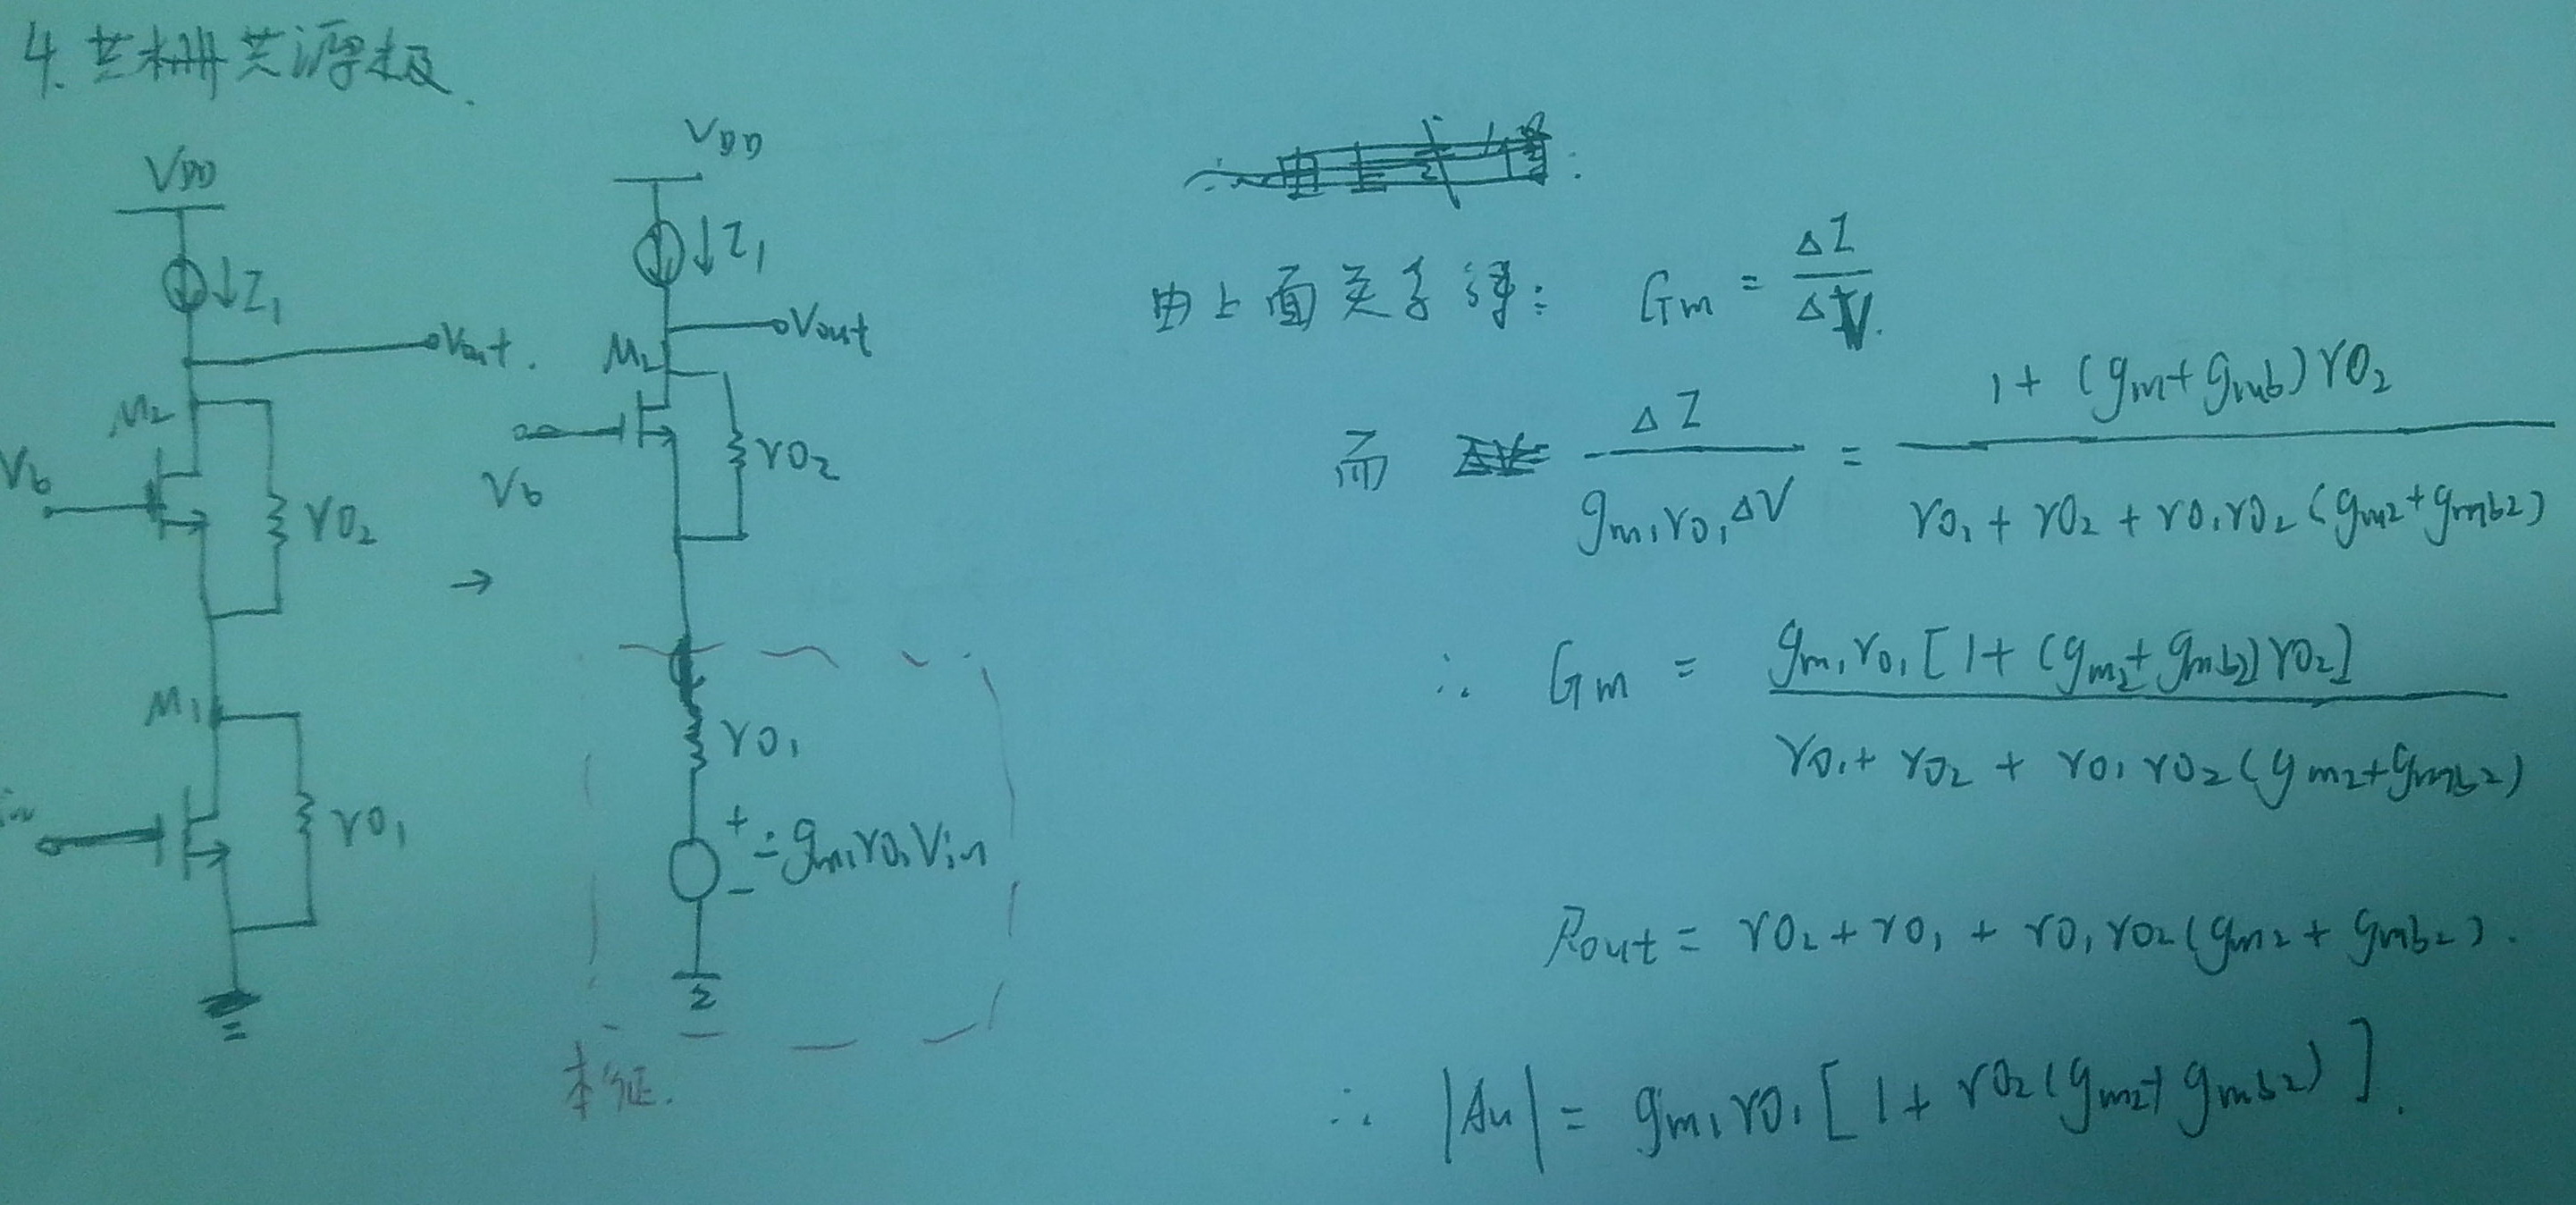 4. 共栅共源极.
VDD
↓I1
Vout.
M2
Vb
rO2
M1
in
rO1
→
VDD
↓I1
Vout
M2
Vb
rO2
rO1
+
-
gm1rO1Vin
本征.
由上面关系得: Gm = ΔI/ΔV.
而 ΔI/(gm1rO1ΔV) = (1 + (gm+gmb)rO2)/(rO1 + rO2 + rO1rO2(gm2+gmb2))
∴ Gm = gm1rO1[1+(gm2+gmb2)rO2]/(rO1 + rO2 + rO1rO2(gm2+gmb2))
Rout = rO2 + rO1 + rO1rO2(gm2 + gmb2).
∴ |Au| = gm1rO1[1 + rO2(gm2+gmb2)].